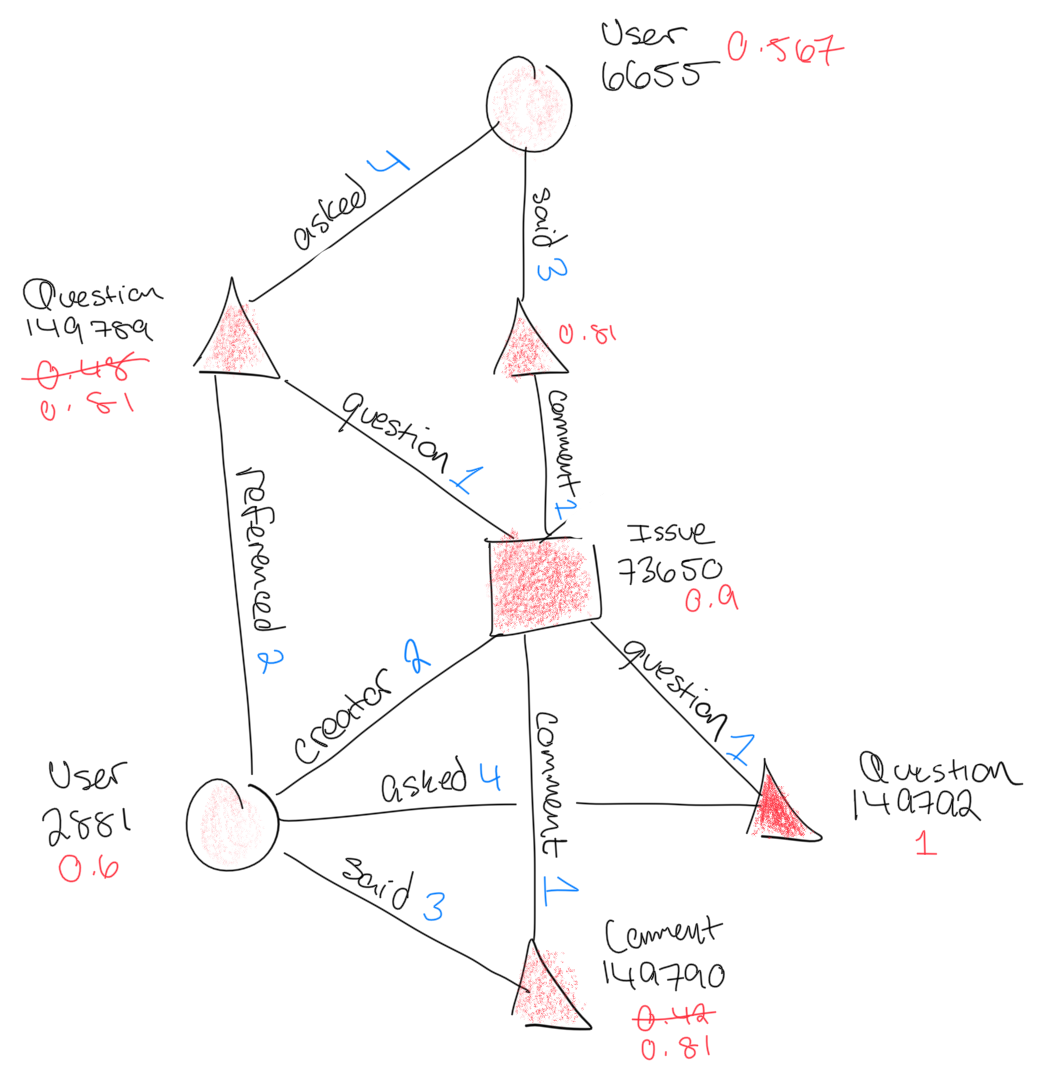 User
6655
0.567
asked 4
said 3
Question
149789
0.48
0.81
0.81
question 1
comment 1
referenced 2
Issue
73650
0.9
creator 2
question 1
User
2881
0.6
asked 4
comment 1
Question
149792
1
said 3
Comment
149790
0.42
0.81